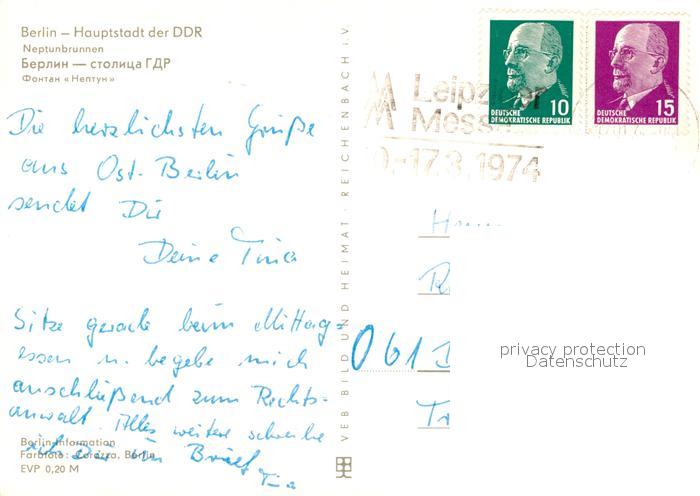 Berlin – Hauptstadt der DDR
Neptunbrunnen
Берлин — столица ГДР
Фонтан «Нептун»
Die herzlichsten Grüße
aus Ost-Berlin
sendet Dir
Deine Tina
Sitze gerade beim Mittag=
essen u. begebe mich
anschließend zum Rechts-
anwalt. Alles weitere schreibe
ich Dir im Brief
Tina
Berlin-Information
Farbfoto: Berlin
EVP 0,20 M
VEB BILD UND HEIMAT · REICHENBACH i. V.
10
DEUTSCHE
DEMOKRATISCHE REPUBLIK
15
DEUTSCHE
DEMOKRATISCHE REPUBLIK
Leipziger
Messe
0.–17.3.1974
061
privacy protection
Datenschutz